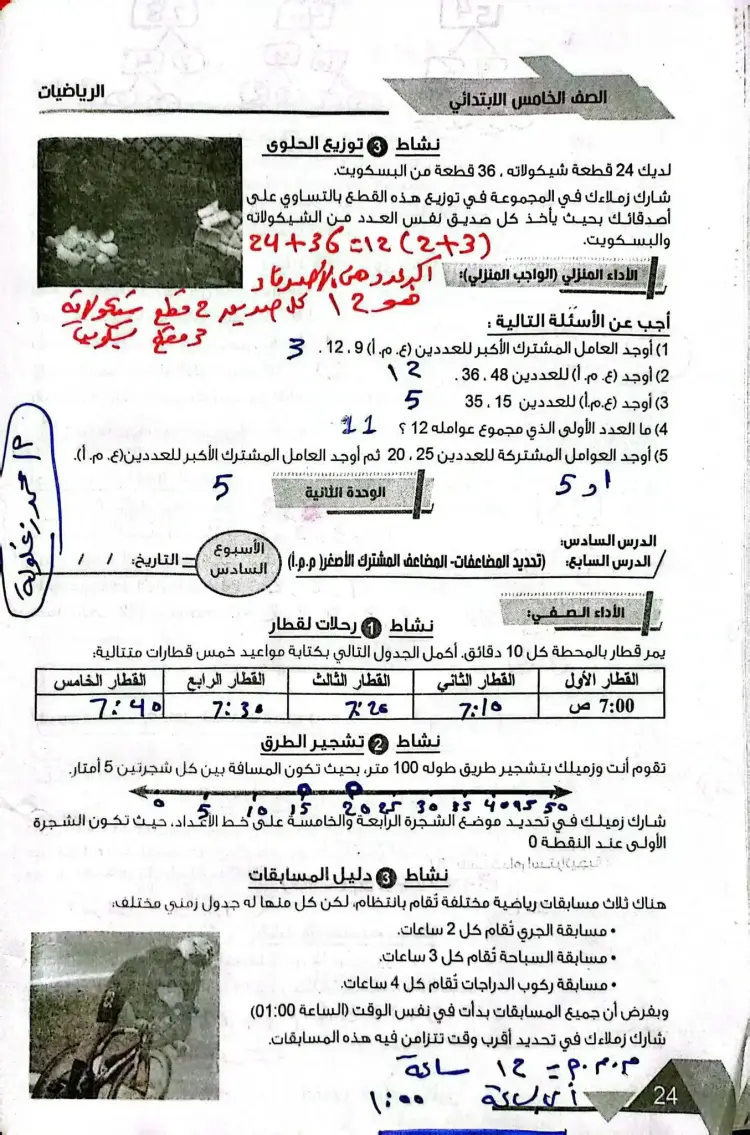 الصف الخامس الابتدائي
الرياضيات
نشاط 3 توزيع الحلوى
لديك 24 قطعة شيكولاته ، 36 قطعة من البسكويت.
شارك زملاءك في المجموعة في توزيع هذه القطع بالتساوي على
أصدقائك بحيث يأخذ كل صديق نفس العدد من الشيكولاته
والبسكويت.
24+36=12(2+3)
الأداء المنزلي (الواجب المنزلي):
هو 12 كل صديق 2 قطع شيكولاته
3 قطع
أجب عن الأسئلة التالية :
1) أوجد العامل المشترك الأكبر للعددين (ع. م. أ) 9 ، 12 . 3
2) أوجد (ع. م. أ) للعددين 48 ، 36 . ١2
3) أوجد (ع.م.أ) للعددين 15 ، 35 5
4) ما العدد الأولى الذي مجموع عوامله 12 ؟ 11
5) أوجد العوامل المشتركة للعددين 25 ، 20 ثم أوجد العامل المشترك الأكبر للعددين(ع. م. أ).
1 و 5
5
الوحدة الثانية
الدرس السادس:
الدرس السابع: (تحديد المضاعفات- المضاعف المشترك الأصغر( م.م.أ)
الأسبوع السادس
التاريخ: / /
الأداء الصفي:
نشاط 1 رحلات لقطار
يمر قطار بالمحطة كل 10 دقائق. أكمل الجدول التالي بكتابة مواعيد خمس قطارات متتالية:
القطار الأول القطار الثاني القطار الثالث القطار الرابع القطار الخامس
7:00 ص 7:10 7:20 7:30 7:40
نشاط 2 تشجير الطرق
تقوم أنت وزميلك بتشجير طريق طوله 100 متر، بحيث تكون المسافة بين كل شجرتين 5 أمتار.
0 5 10 15 20 25 30 35 40 45 50
شارك زميلك في تحديد موضع الشجرة الرابعة والخامسة على خط الأعداد، حيث تكون الشجرة
الأولى عند النقطة 0
نشاط 3 دليل المسابقات
هناك ثلاث مسابقات رياضية مختلفة تُقام بانتظام، لكن كل منها له جدول زمني مختلف:
• مسابقة الجري تُقام كل 2 ساعات.
• مسابقة السباحة تُقام كل 3 ساعات.
• مسابقة ركوب الدراجات تُقام كل 4 ساعات.
وبفرض أن جميع المسابقات بدأت في نفس الوقت (الساعة 01:00)
شارك زملاءك في تحديد أقرب وقت تتزامن فيه هذه المسابقات.
م.م.م = 12 ساعة
١:٥٥
24